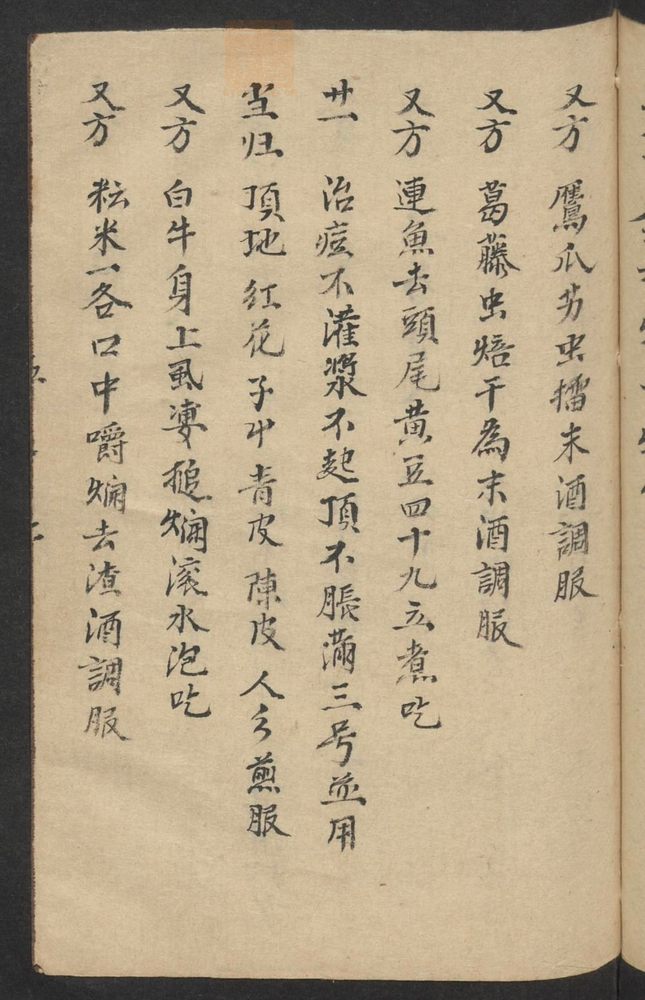 又方 鷹爪艻虫擂末酒調服
又方 葛藤虫焙干為末酒調服
又方 連魚去頭尾黄豆四十九立煮吃
廿一 治痘不灌漿不起頂不脹滿三号並用
当归 頂地 紅花 子中 青皮 陳皮 人乡 煎服
又方 白牛身上虱婆搥爛滚水泡吃
又方 粘米一各口中嚼爛去渣酒調服